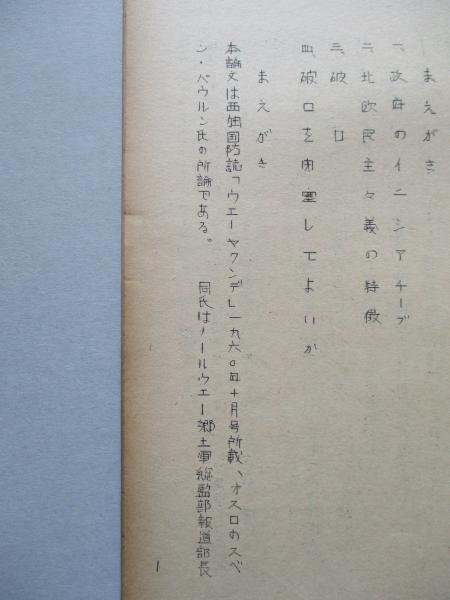 まえがき
一、政府のイニシアチーブ
二、北欧民主々義の特徴
三、破口
四、破口を閉塞してよいか
まえがき
本論文は西独国防誌「ウエーヤクンデ」一九六〇年十月号所載、オスロのスベ
ン・ベウルン氏の所論である。　同氏はノールウエー郷土軍総監部報道部長
1